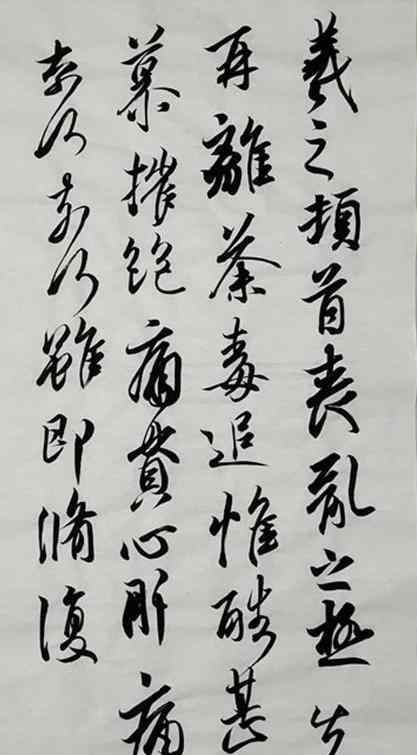 羲之頓首喪亂之極
再離荼毒追惟酷甚
慕摧絶痛貫心肝痛
奈何奈何雖即脩復